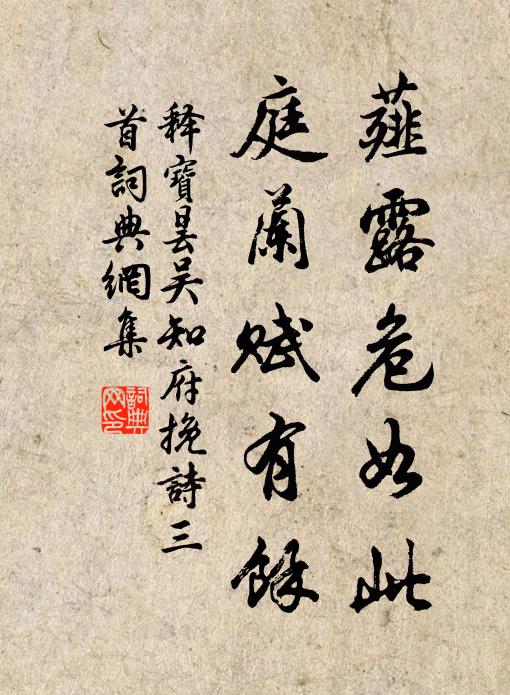 薤露危如此
庭蘭賦有餘
釋寶曇吴知府挽詩三
首詞典網集
詞典
网印